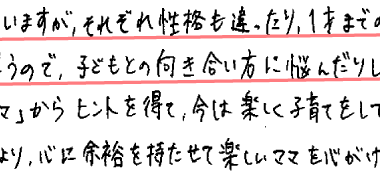 いますが、それぞれ性格も違ったり、1才までの
うので、子どもとの向き合い方に悩んだりし
マ」からヒントを得て、今は楽しく子育てをして
より、心に余裕を持たせて楽しいママを心がけ